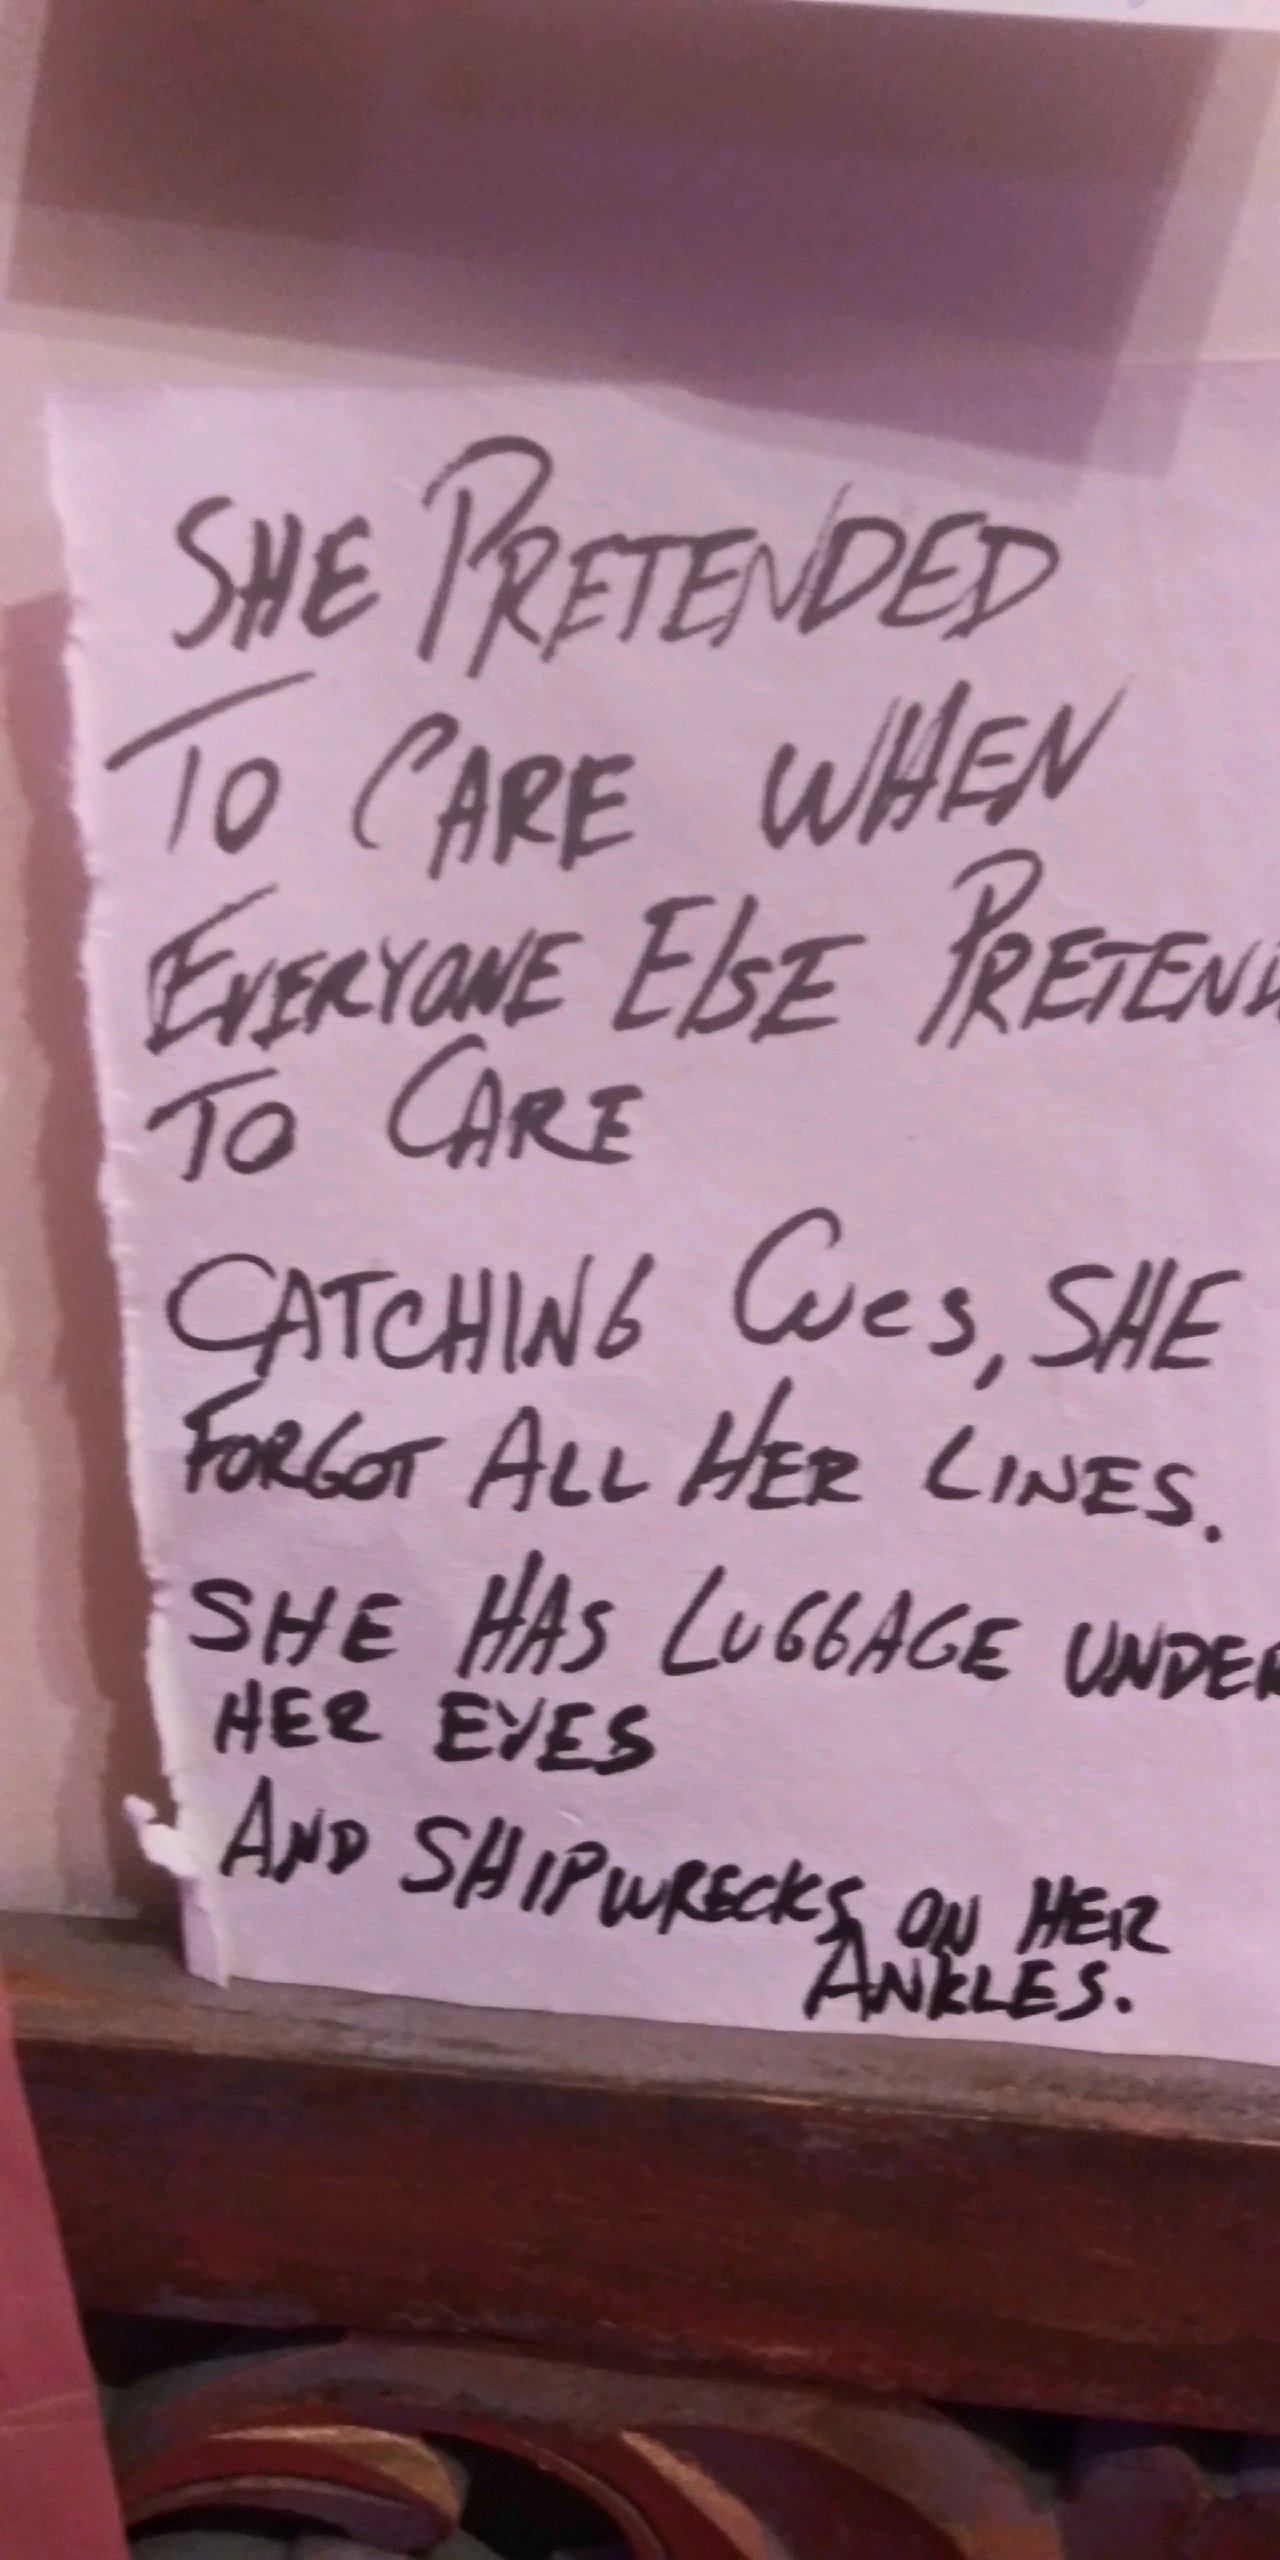 SHE PRETENDED
TO CARE WHEN
EVERYONE ELSE PRETEND
TO CARE
CATCHING CUES, SHE
FORGOT ALL HER LINES.
SHE HAS LUGGAGE UNDER
HER EYES
AND SHIPWRECKS ON HER
ANKLES.